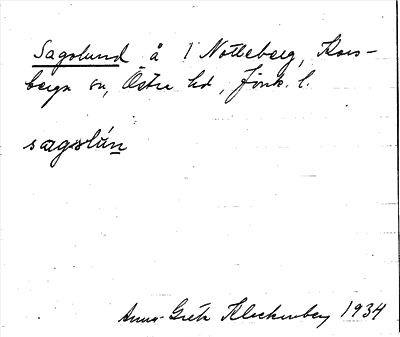 Sagolund å 1 Notteberg, Kors-
berga sn, Östra hd, Jönk. l.
sagolún
Anna-Greta Klockenberg 1934